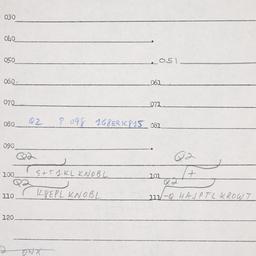 030
040
050 051
060 061
070 071
080 Q2 ? 098 168ERK815 081
090
Q2 Q2
100 S+T1KL KNOBL 101 1+
Q2 Q2
110 KBEPL KNOBL 111 -Q HAJPTL KROWT
120